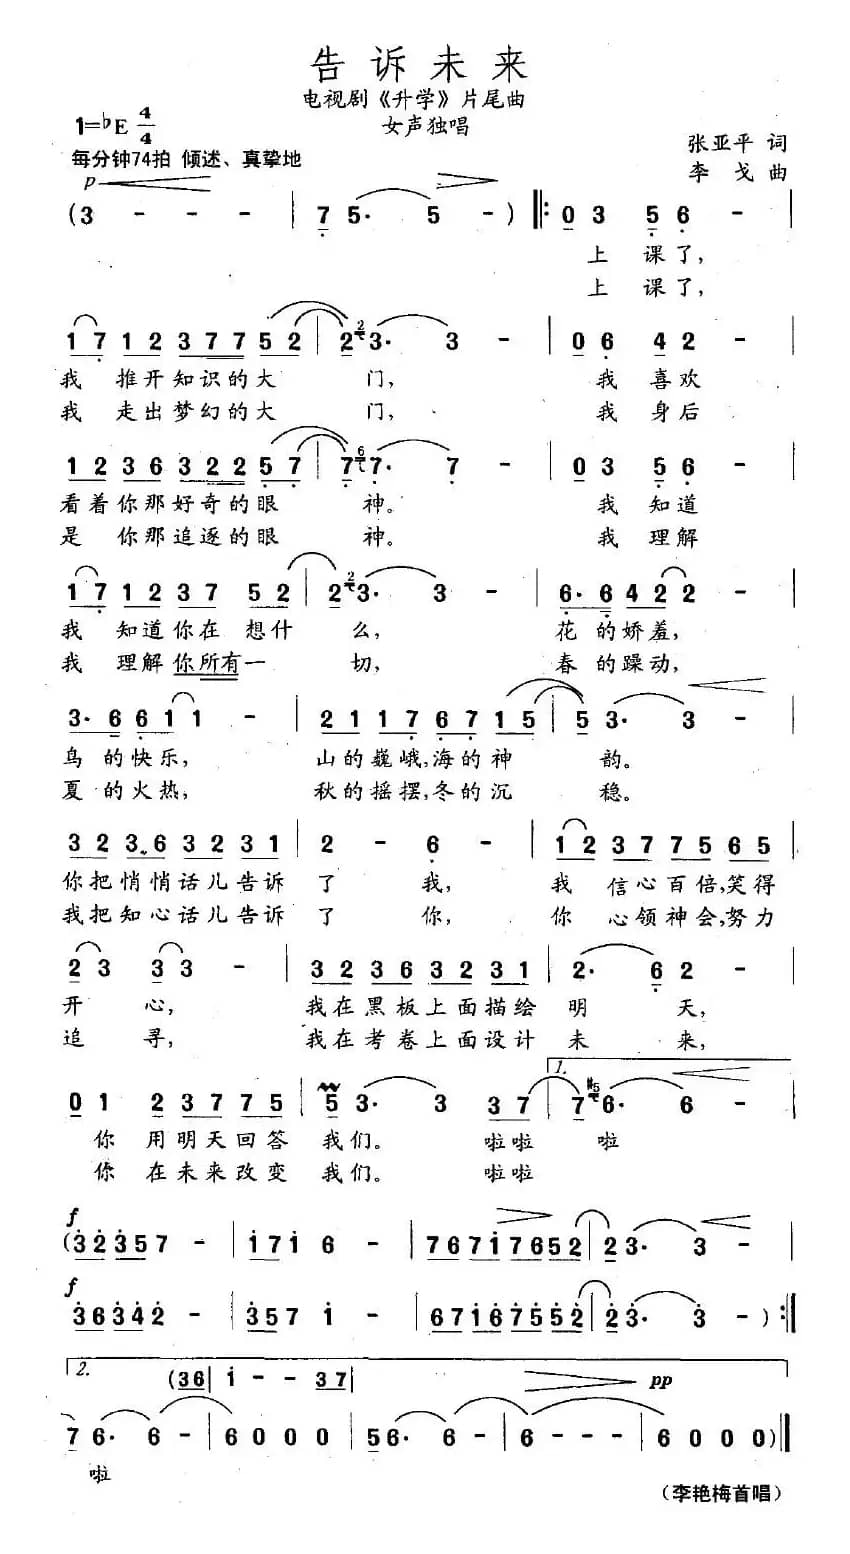 告诉未来
电视剧《升学》片尾曲
女声独唱
1=♭E 4/4
每分钟74拍 倾述、真挚地
张亚平 词
李戈 曲
p
(3 - - - | 7 5· 5 - ) ‖: 0 3 5 6 - |
上 课 了,
上 课 了,
1 7 1 2 3 7 7 5 2 | 2 2 3· 3 - | 0 6 4 2 - |
我 推开知识的大 门, 我 喜欢
我 走出梦幻的大 门, 我 身后
1 2 3 6 3 2 2 5 7 | 7 6 7· 7 - | 0 3 5 6 - |
看着你那好奇的眼 神。 我 知道
是 你那追逐的眼 神。 我 理解
1 7 1 2 3 7 5 2 | 2 2 3· 3 - | 6· 6 4 2 2 - |
我 知道你在 想什 么, 花 的娇羞,
我 理解你所有一 切, 春 的躁动,
3· 6 6 1 1 - | 2 1 1 7 6 7 1 5 | 5 3· 3 - |
鸟 的快乐, 山的巍峨,海的神 韵。
夏 的火热, 秋的摇摆,冬的沉 稳。
3 2 3· 6 3 2 3 1 | 2 - 6 - | 1 2 3 7 7 5 6 5 |
你把悄悄话儿告诉 了 我, 我 信心百倍,笑得
我把知心话儿告诉 了 你, 你 心领神会,努力
2 3 3 3 - | 3 2 3 6 3 2 3 1 | 2· 6 2 - |
开 心, 我在黑板上面描绘 明 天,
追 寻, 我在考卷上面设计 未 来,
1.
0 1 2 3 7 7 5 | 5 3· 3 3 7 | 7 #5 6· 6 - |
你 用明天回答 我们。 啦啦 啦
你 在未来改变 我们。 啦啦
f
(3 2 3 5 7 - | 1 7 1 6 - | 7 6 7 1 7 6 5 2 | 2 3· 3 - |
f
3 6 3 4 2 - | 3 5 7 1 - | 6 7 1 6 7 5 5 2 | 2 3· 3 - ) :‖
2.
(3 6 | 1 - - 3 7 |
pp
7 6· 6 - | 6 0 0 0 | 5 6· 6 - | 6 - - - | 6 0 0 0 ) ‖
啦
(李艳梅首唱)